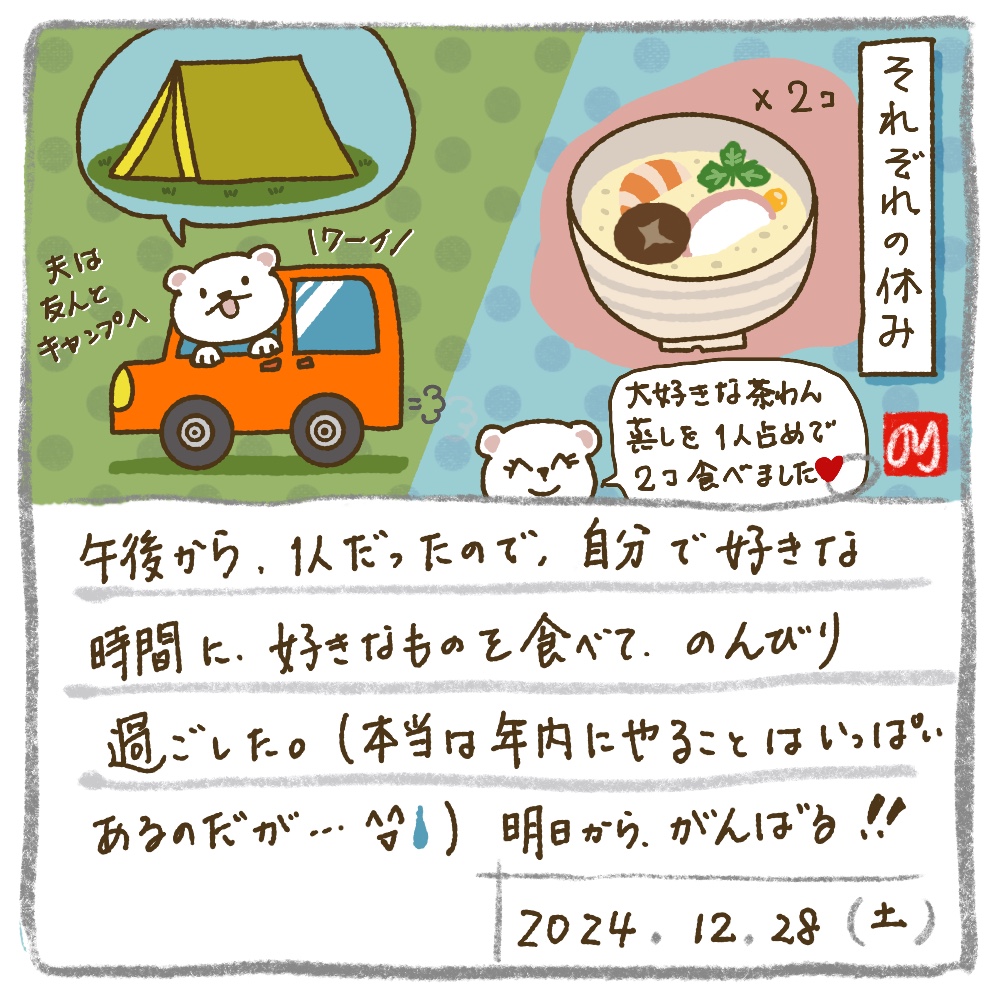 それぞれの休み
×2コ
\ワーイ/
夫は
友人と
キャンプへ
大好きな茶わん
蒸しを1人占めで
2コ食べました
午後から、1人だったので、自分で好きな
時間に、好きなものを食べて、のんびり
過ごした。(本当は年内にやることはいっぱい
あるのだが… ) 明日から、がんばる!!
2024.12.28(土)